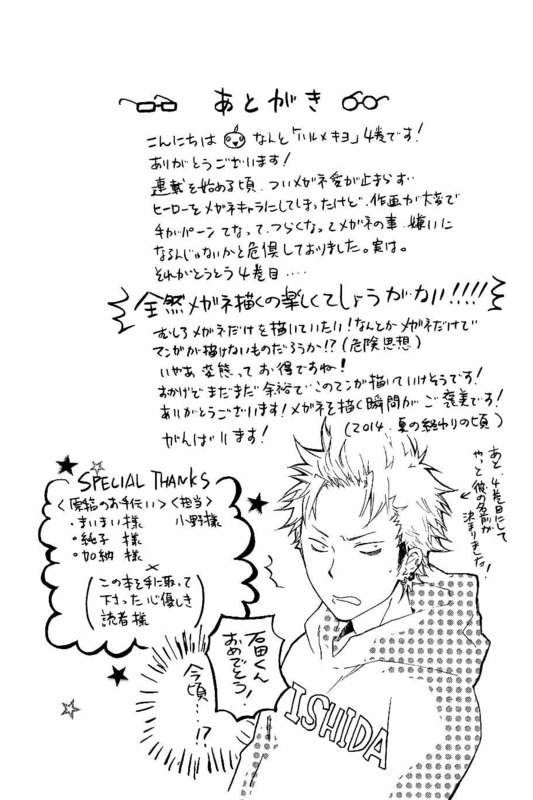 あとがき
こんにちは なんと「ハルメキヨ」4巻です!
ありがとうございます!
連載を始める頃、ついメガネ愛が止まらず…
ヒーローをメガネキャラにしてしまったけど、作画が大変で
手がパーンてなって、つらくなってメガネの事、嫌いに
なるんじゃないかと危惧しておりました。実は。
それがとうとう4巻目....
全然メガネ描くの楽しくてしょうがない!!!!
むしろメガネだけを描いていたい!なんとかメガネだけで
マンガが描けないものだろうか!?(危険思想)
いやあ変態ってお得ですね!
おかげでまだまだ余裕でこのマンガ描いていけそうです!
ありがとうございます!メガネを描く瞬間がご褒美です!
がんばります!
(2014.夏の終わりの頃)
あと、4巻目にして
やっと彼の名前が
決まりました!
SPECIAL THANKS
<原稿のお手伝い> <担当>
・まいまい様 小野様
・純子様
・加納様
×
(この本を手に取って
下さった心優しき
読者様)
石田くん
おめでとう!
今頃…!?
ISHIDA